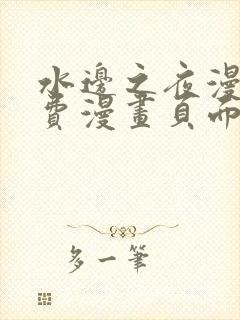 水邊之夜漫
費漫畫頁面
多一筆